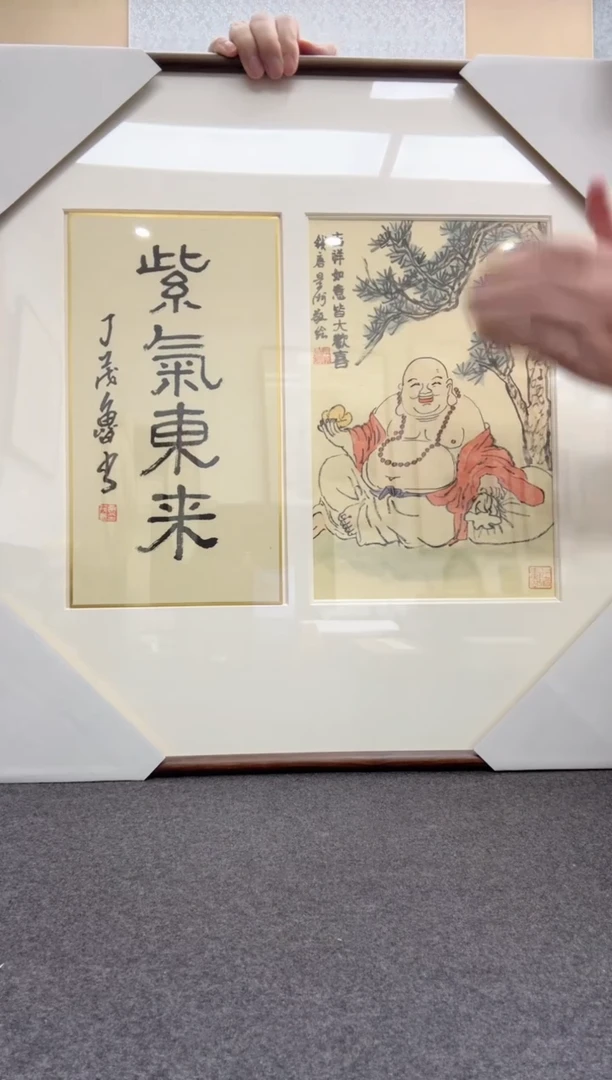 紫氣東来
丁茂魯书
吉祥如意皆大歡喜